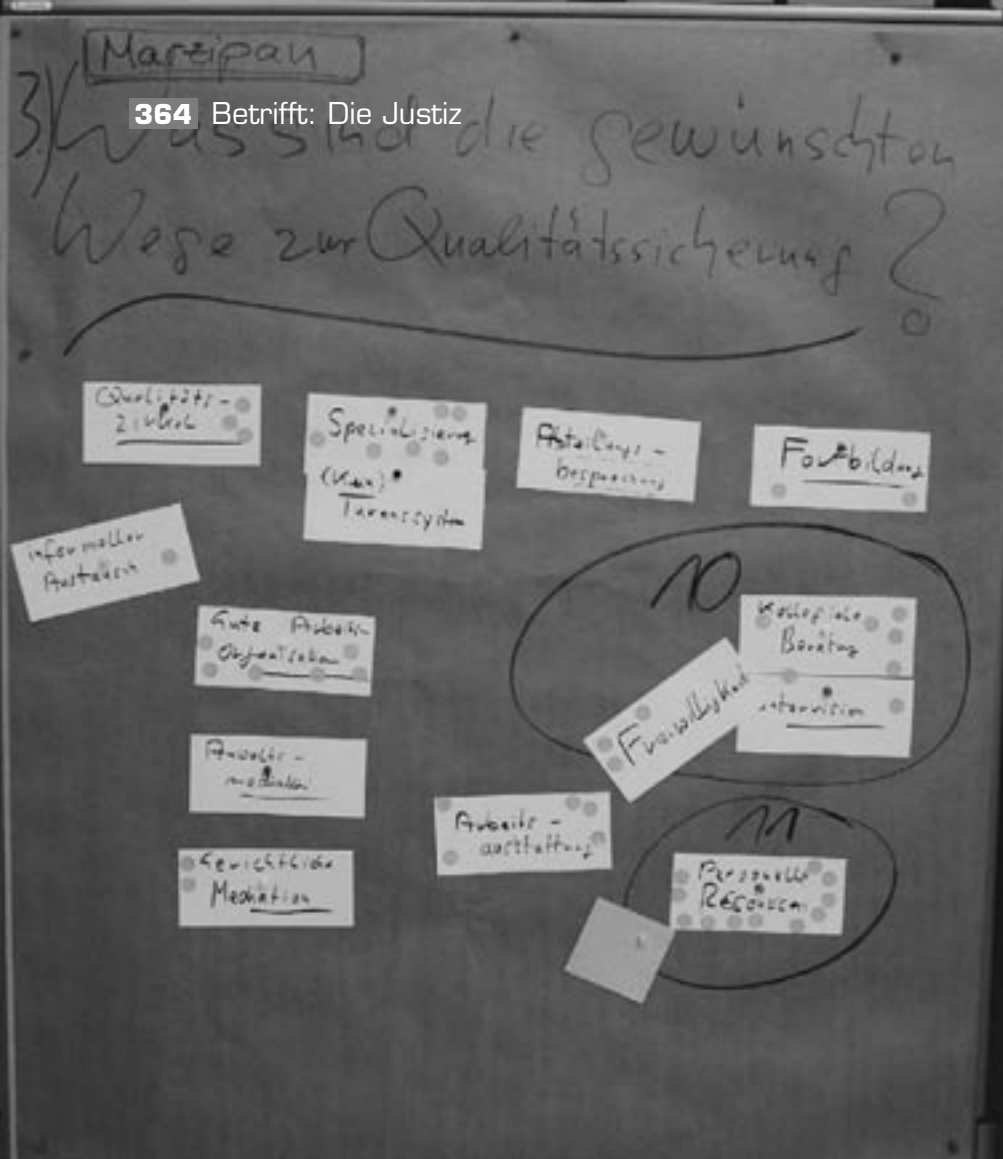 Marzipan
364 Betrifft: Die Justiz
3.) Was sind die gewünschten
Wege zur Qualitätssicherung?
Qualitäts-
zirkel
Spezialisierung
(Kein)
Turnussystem
Abteilungs-
besprechung
Fortbildung
informeller
Austausch
10
Kollegiale
Beratung
Intervision
Freiwilligkeit
Gute Arbeits-
Organisation
Anwalts-
Arbeits-
ausstattung
11
Personelle
Ressourcen
Gerichtliche
Mediation